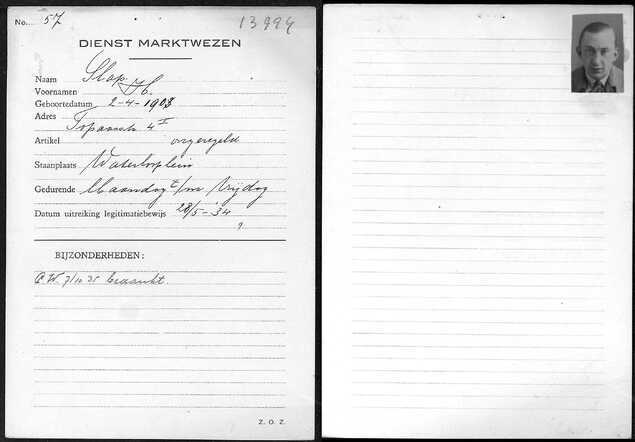 No. 57 13994
DIENST MARKTWEZEN
Naam Slap.
Voornamen H.
Geboortedatum 2-4-1903
Adres Topaasstr. 4 I
Artikel ongeregeld
Staanplaats Waterlooplein
Gedurende Maandag t/m Vrijdag
Datum uitreiking legitimatiebewijs 28/5-'34
?
BIJZONDERHEDEN:
C.W. 7/10 35
Z. O. Z.